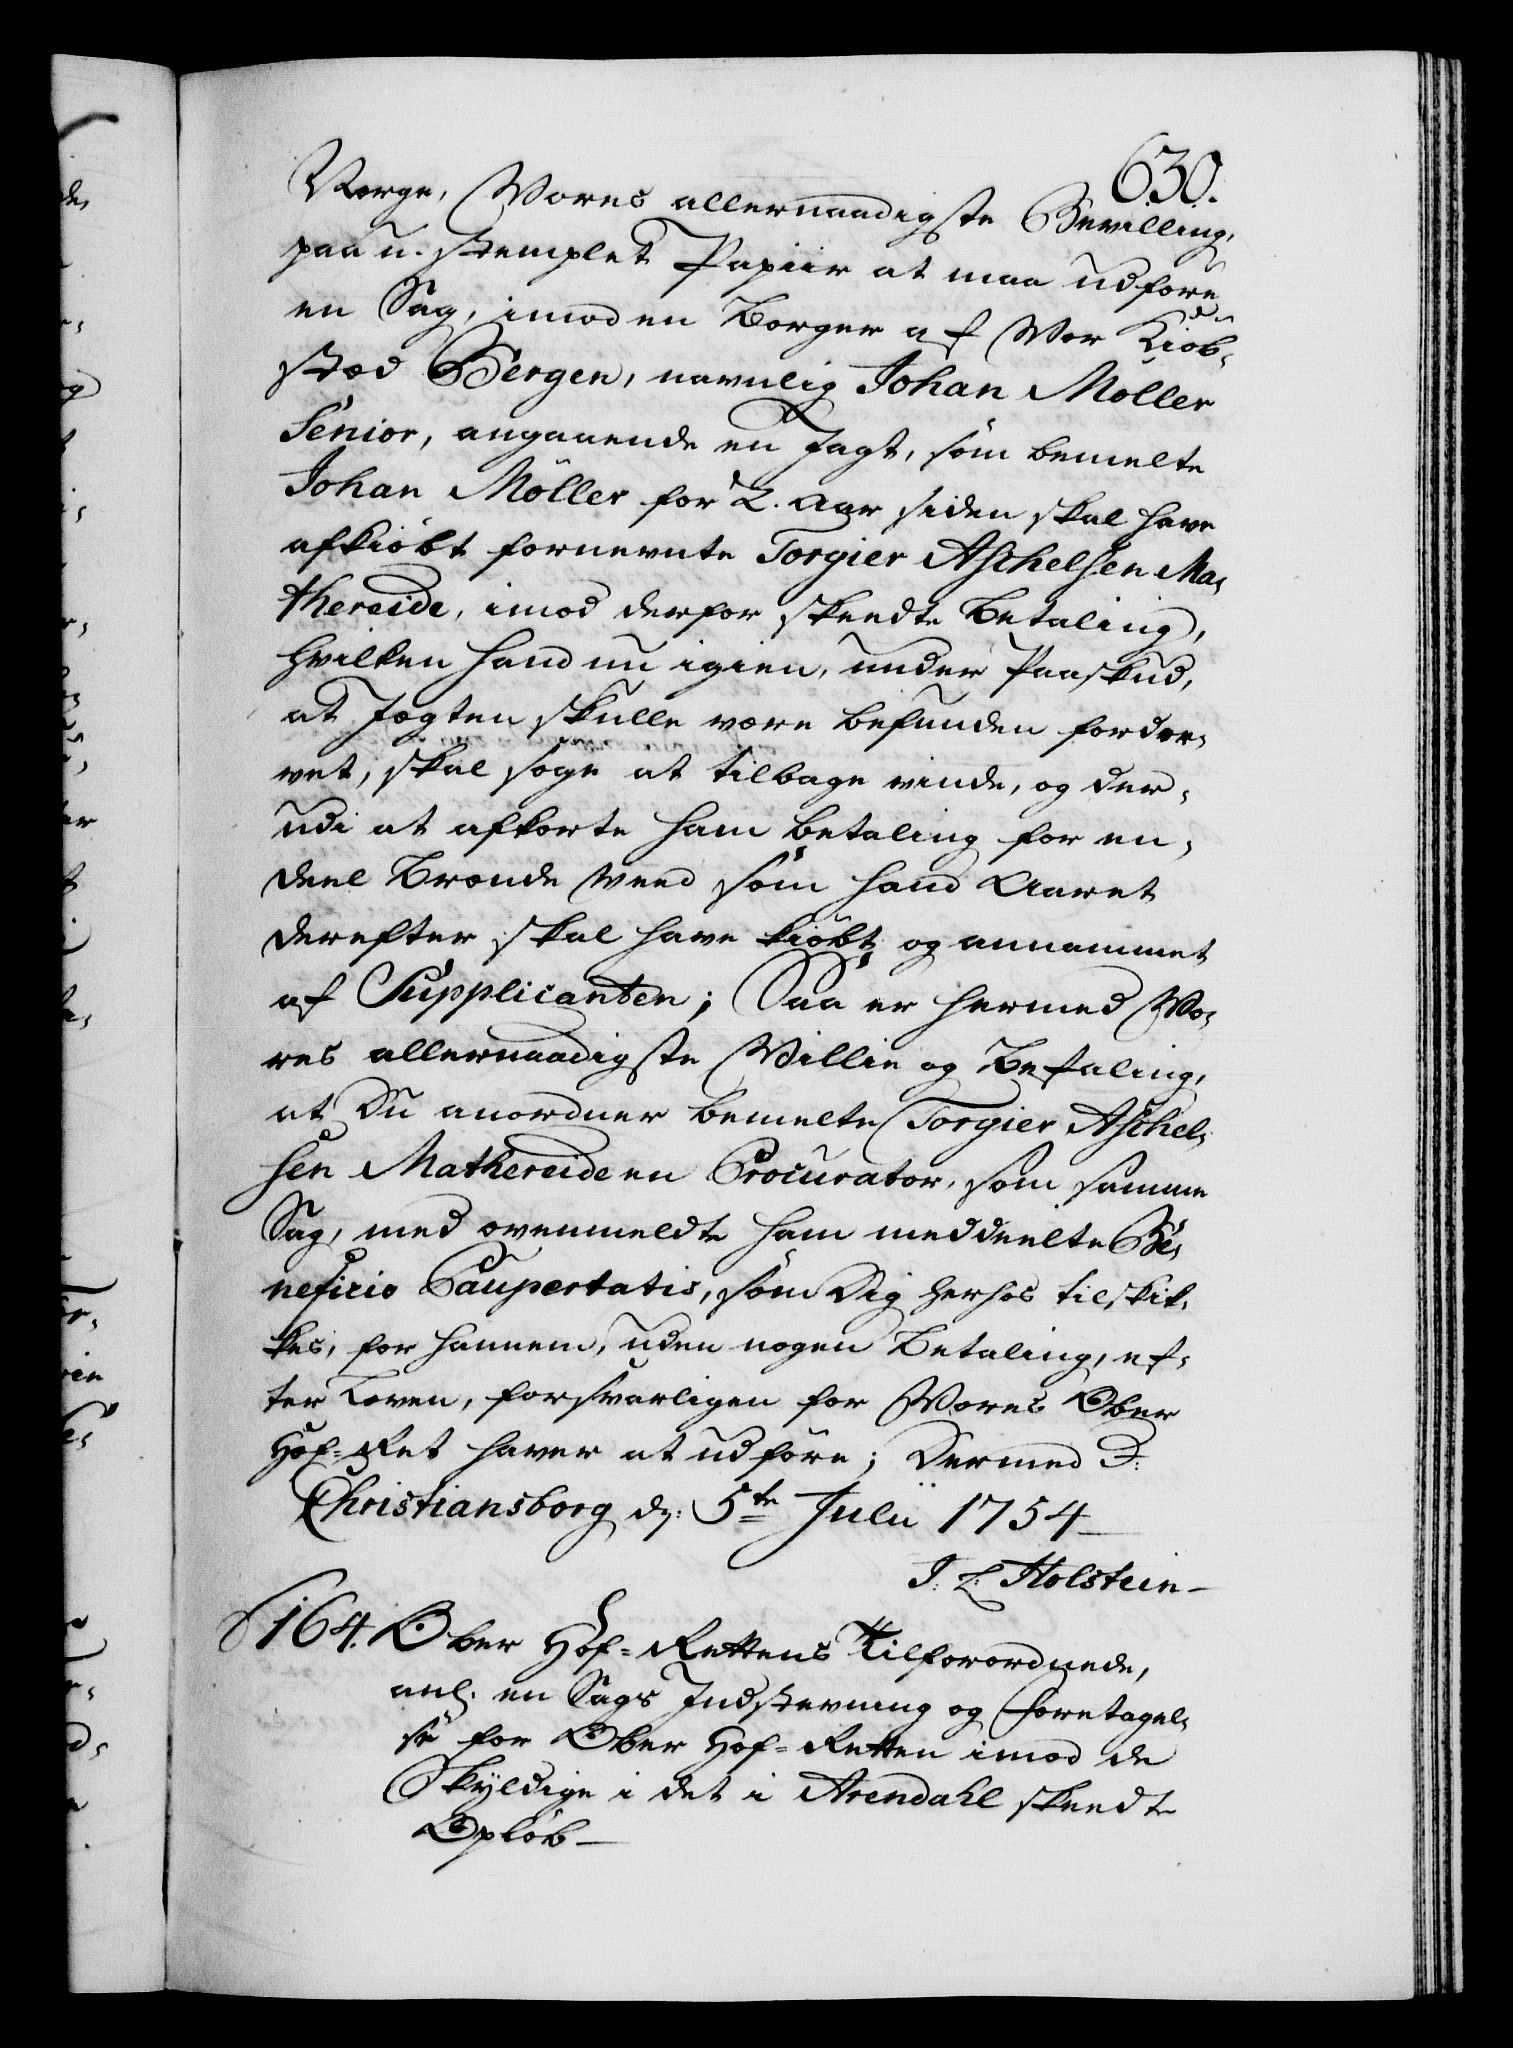 630.
Norge, Vores allernaadigste Bevilling,
paa u-stemplet Papiir at maa udføre
en Sag, imod en Borger af Vor Kiøb-
sted Bergen, navnlig Johan Møller
Senior, angaaende en Jagt, som bemelte
Johan Møller for 2. Aar siden skal have
afkiøbt fornevnte Torgier Aschelsen Ma-
thereide, imod derfor skeedte Betaling,
hvilken hand nu igien, under Paaskud,
at Jagten skulle være befunden forder-
vet, skal søge at tilbage vinde, og der-
udi at afkorte ham betaling for en-
deel Brænde Veed som hand Aaret
derefter skal have kiøbt og annammet
af Supplicanten; Saa er hermed Vo-
res allernaadigste Villie og Befaling,
at Du anordner bemelte Torgier Aschel-
sen Mathereide en Procurator, som samme
Sag, med ovenmeldte ham meddeelte Be-
neficio Paupertatis, som Dig herhos tilskik-
kes, for hannem, uden nogen Betaling, ef-
ter Loven, forsvarligen for Vores Ober
Hof-Ret haver at udføre; Dermed ꝛ:
Christiansborg dẏ: 5te Julii 1754
J: L: Holstein
164. Ober Hof-Rettens Tilforordnede,
anl. en Sags Indstevning og Foretagel-
se for Ober Hof-Retten imod de
Skyldige i det i Arendahl skeedte
Opløb